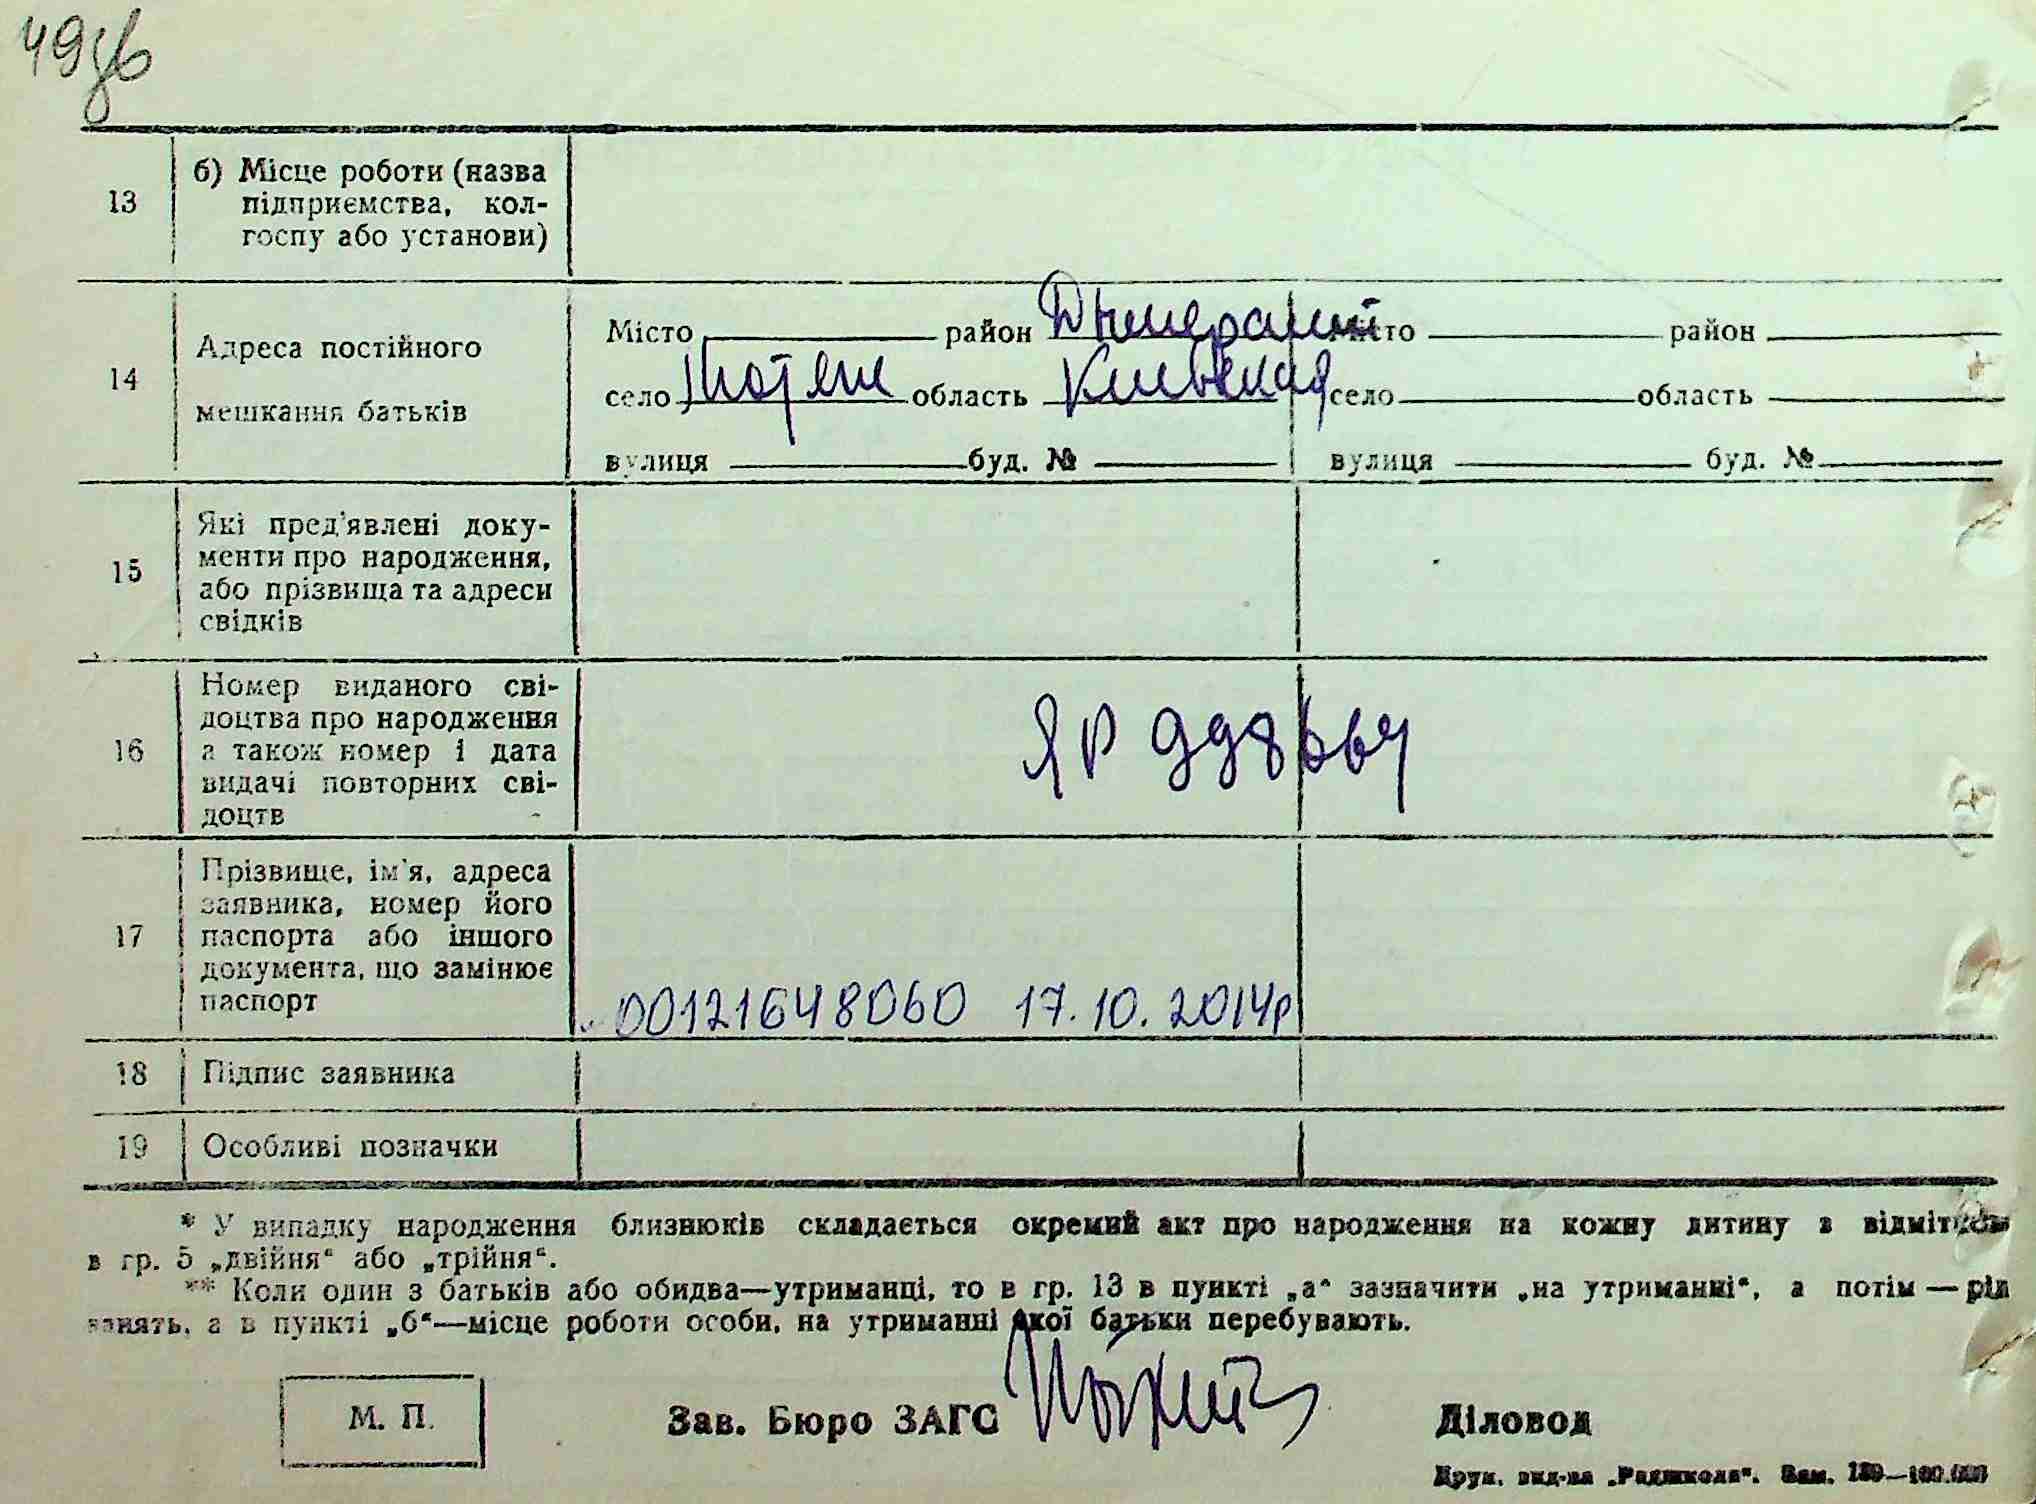 49зв
13
б) Місце роботи (назва
підприємства, кол-
госпу або установи)
14
Адреса постійного
мешкання батьків
Місто район Дымерский
село область Киевская
вулиця буд. №
Місто район
село область
вулиця буд. №
15
Які пред'явлені доку-
менти про народження,
або прізвища та адреси
свідків
16
Номер виданого сві-
доцтва про народження
а також номер і дата
видачі повторних сві-
доцтв
ЯР
17
Прізвище, ім'я, адреса
заявника, номер його
паспорта або іншого
документа, що замінює
паспорт
00121648060 17.10.2014р
18
Підпис заявника
19
Особливі позначки
* У випадку народження близнюків складається окремий акт про народження на кожну дитину з відміткою
в гр. 5 „двійня“ або „трійня“.
** Коли один з батьків або обидва—утриманці, то в гр. 13 в пункті „а“ зазначити „на утриманні“, а потім — рід
занять, а в пункті „б“—місце роботи особи, на утриманні якої батьки перебувають.
М. П.
Зав. Бюро ЗАГС
Діловод
Друк. вид-ва „Радшкола“. Зам.